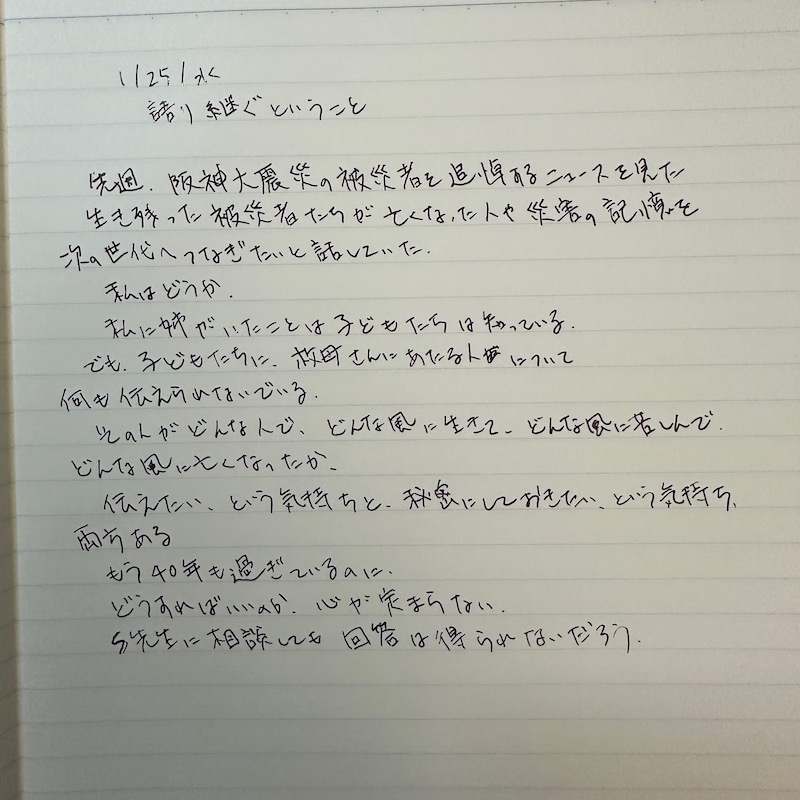 1/25/水
語り継ぐということ
先週、阪神大震災の被災者を追悼するニュースを見た
生き残った被災者たちが亡くなった人や災害の記憶を
次の世代へつなぎたいと話していた。
私はどうか。
私に姉がいたことは子どもたちは知っている。
でも、子どもたちに、叔母さんにあたる人について
何も伝えられないでいる。
その人がどんな人で、どんな風に生きて、どんな風に苦しんで、
どんな風に亡くなったか、
伝えたい、という気持ちと、秘密にしておきたい、という気持ち、
両方ある
もう40年も過ぎているのに、
どうすればいいのか、心が定まらない。
S先生に相談しても回答は得られないだろう。